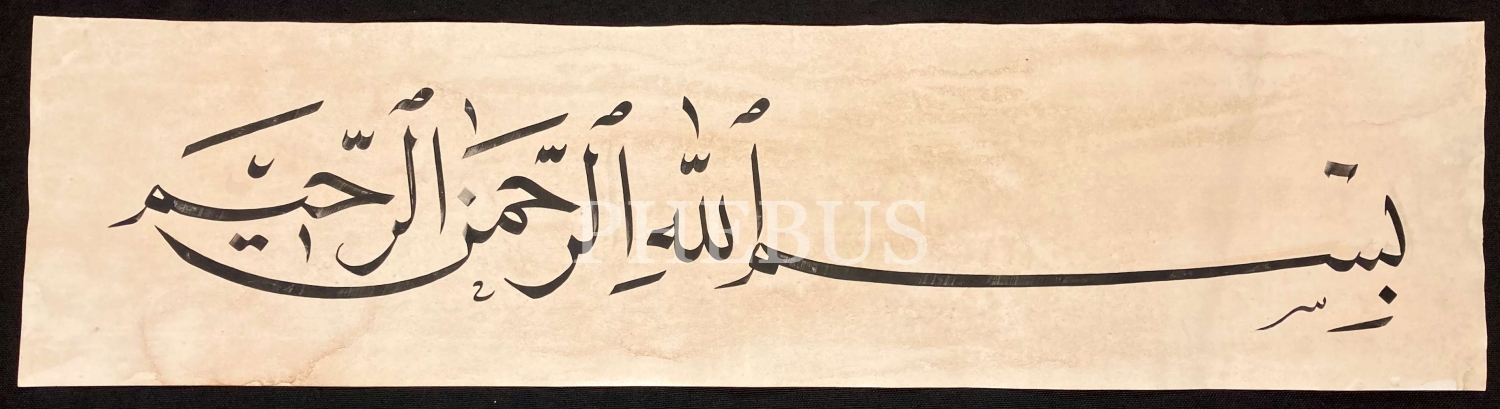 بِسْمِ ٱللّٰهِ ٱلرَّحْمٰنِ ٱلرَّحِيمِ
PHEBUS